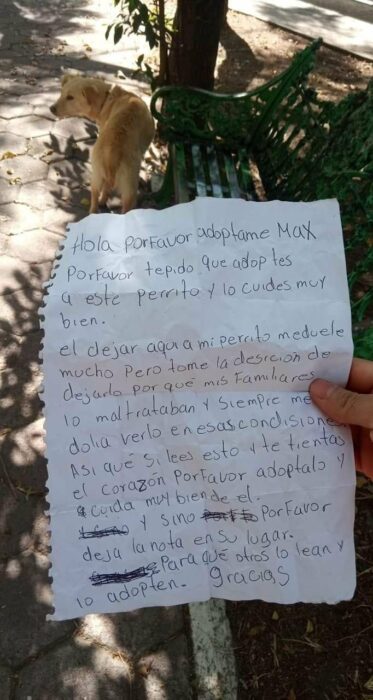 Hola Porfavor adoptame Max
Porfavor tepido que adoptes
a este perrito y lo cuides muy
bien.
el dejar aqui a mi perrito meduele
mucho Pero tome la desicion de
dejarlo por que mis Familiares
lo maltrataban y siempre me
dolia verlo en esas condisiones
Asi que si lees esto y te tientas
el corazon Porfavor adoptalo y
cuida muy bien de el.
y sino Porfavor
deja la nota en su lugar.
Para que otros lo lean y
lo adopten. gracias